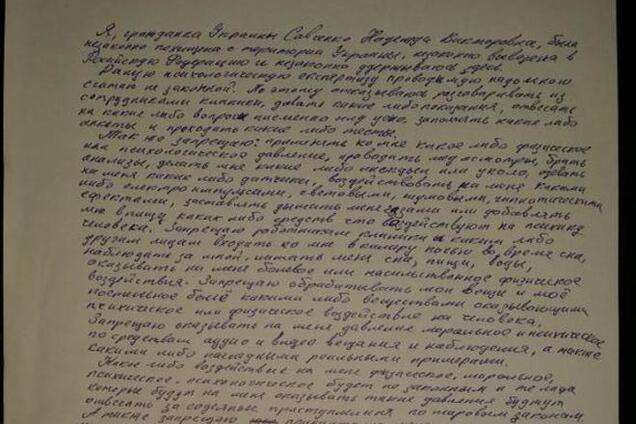 Я, гражданка Украины Савченко Надежда Викторовна, была
незаконно похищена с территории Украины, незаконно вывезена в
Российскую Федерацию и незаконно удерживаюсь здесь.
Раную психологическую експертизу проводимую надо мною
считаю не законной. По этому отказываюсь разговаривать из
сотрудниками клиники, давать какие либо показания, отвечать
на какие либо вопросы письменно или устно, заполнять какие либо
анкеты и проходить какие либо тесты.
Так же запрещаю: применять ко мне какое либо физическое
или психологическое давление, проводить мед осмотри, брать
анализы, делать мне какие либо инекции или уколо,
на меня какие либо датчики, воздействовать на меня какими
либо електро импульсами, световыми, шумовыми, гипнотическими
ефектами, заставлять дышать меня газами или добавлять
мне в пищу каких либо средств что воздействуют на психику
человека. Запрещаю работникам клиники и каким либо
другим лицам входить ко мне в камеру ночью во время сна,
наблюдать за мной, лишать меня сна, пищи, воды,
оказывать на меня болевое или насильственное физическое
воздействия. Запрещаю обрабатывать мои вещи и моё
постельное бельё какими либо веществами оказывающими
психическое или физическое воздействие на человека.
Запрещаю оказывать на меня давление моральное и психическое
по средствам аудио и видео вещания и наблюдения, а также
какими либо наглядными реальными примерами.
Какое либо воздействие на меня физическое, моральное,
психическое, психологическое будет не законным и те лица
которые будут на меня оказывать такие давления будут
отвечать за содеяные преступления по мировым законам.
А также запрещаю